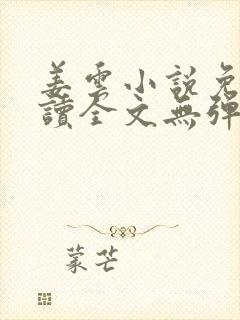 姜雲小說免
讀全文無彈
蒙芒